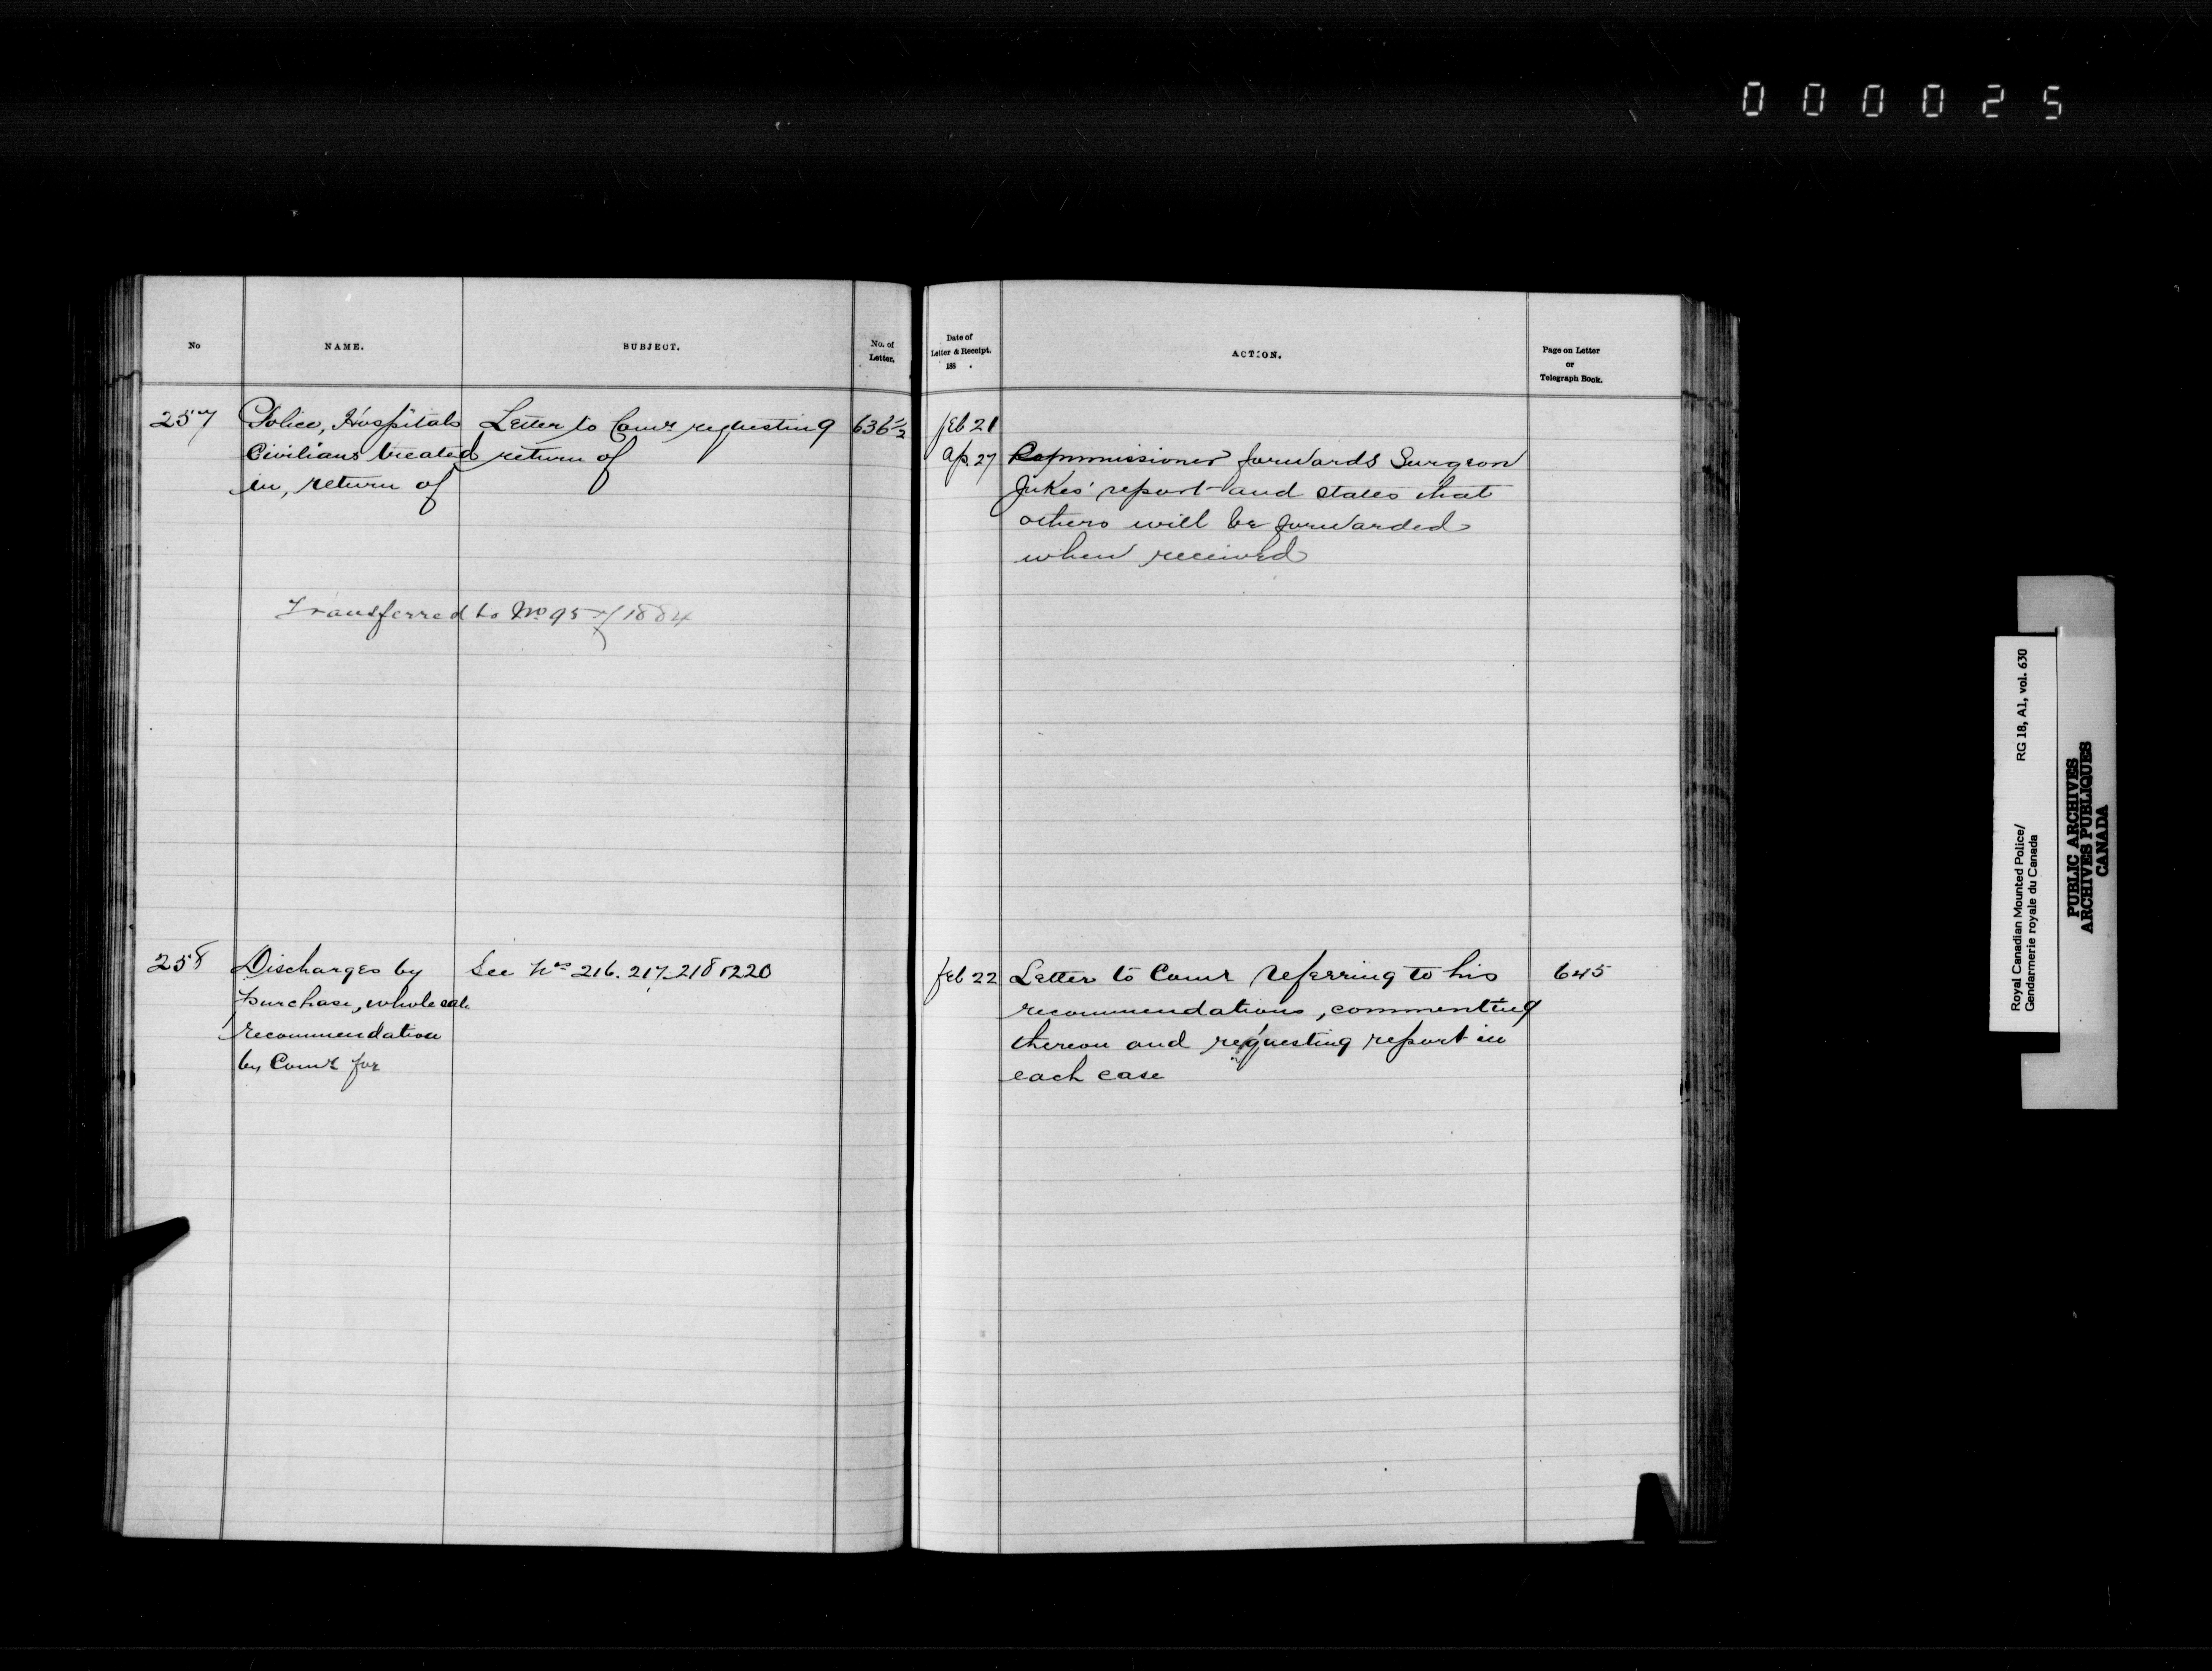 000025
No
NAME.
SUBJECT.
No. of
Letter.
Date of
Letter & Receipt.
188 .
ACTION.
Page on Letter
or
Telegraph Book.
257
Police, Hospitals
Civilians treated
in, return of
Letter to Comr requesting
return of
636½
Feb 21
Ap. 27
Commissioner forwards Surgeon
Jukes' report and states that
others will be forwarded
when received
Transferred to No 95/1884
258
Discharges by
Purchase, wholesale
recommendation
by Comr for
See Nos 216. 217. 218 & 220
Feb 22
Letter to Comr referring to his
recommendations, commenting
thereon and requesting report in
each case
645
Royal Canadian Mounted Police/
Gendarmerie royale du Canada
RG 18, A1, vol. 630
PUBLIC ARCHIVES
ARCHIVES PUBLIQUES
CANADA